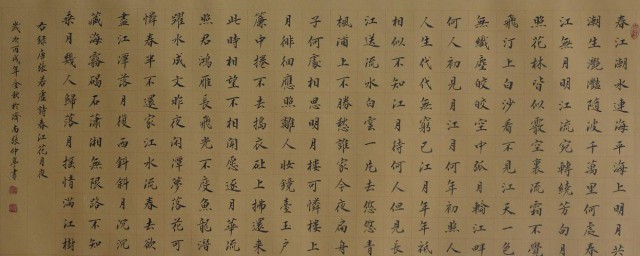 春江潮水連海平海上明月共
潮生灩灩隨波千萬里何處春
江無月明江流宛轉繞芳甸月
照花林皆似霰空裏流霜不覺
飛汀上白沙看不見江天一色
無纖塵皎皎空中孤月輪江畔
何人初見月江月何年初照人
人生代代無窮已江月年年祇
相似不知江月待何人但見長
江送流水白雲一片去悠悠青
楓浦上不勝愁誰家今夜扁舟
子何處相思明月樓可憐樓上
月徘徊應照離人妝鏡臺玉戶
簾中捲不去搗衣砧上拂還來
此時相望不相聞願逐月華流
照君鴻雁長飛光不度魚龍潛
躍水成文昨夜閑潭夢落花可
憐春半不還家江水流春去欲
盡江潭落月復西斜斜月沉沉
藏海霧碣石瀟湘無限路不知
乘月幾人歸落月搖情滿江樹
右錄唐張若虛詩春江花月夜
歲次丙戌年金秋於濟南張仲亭書